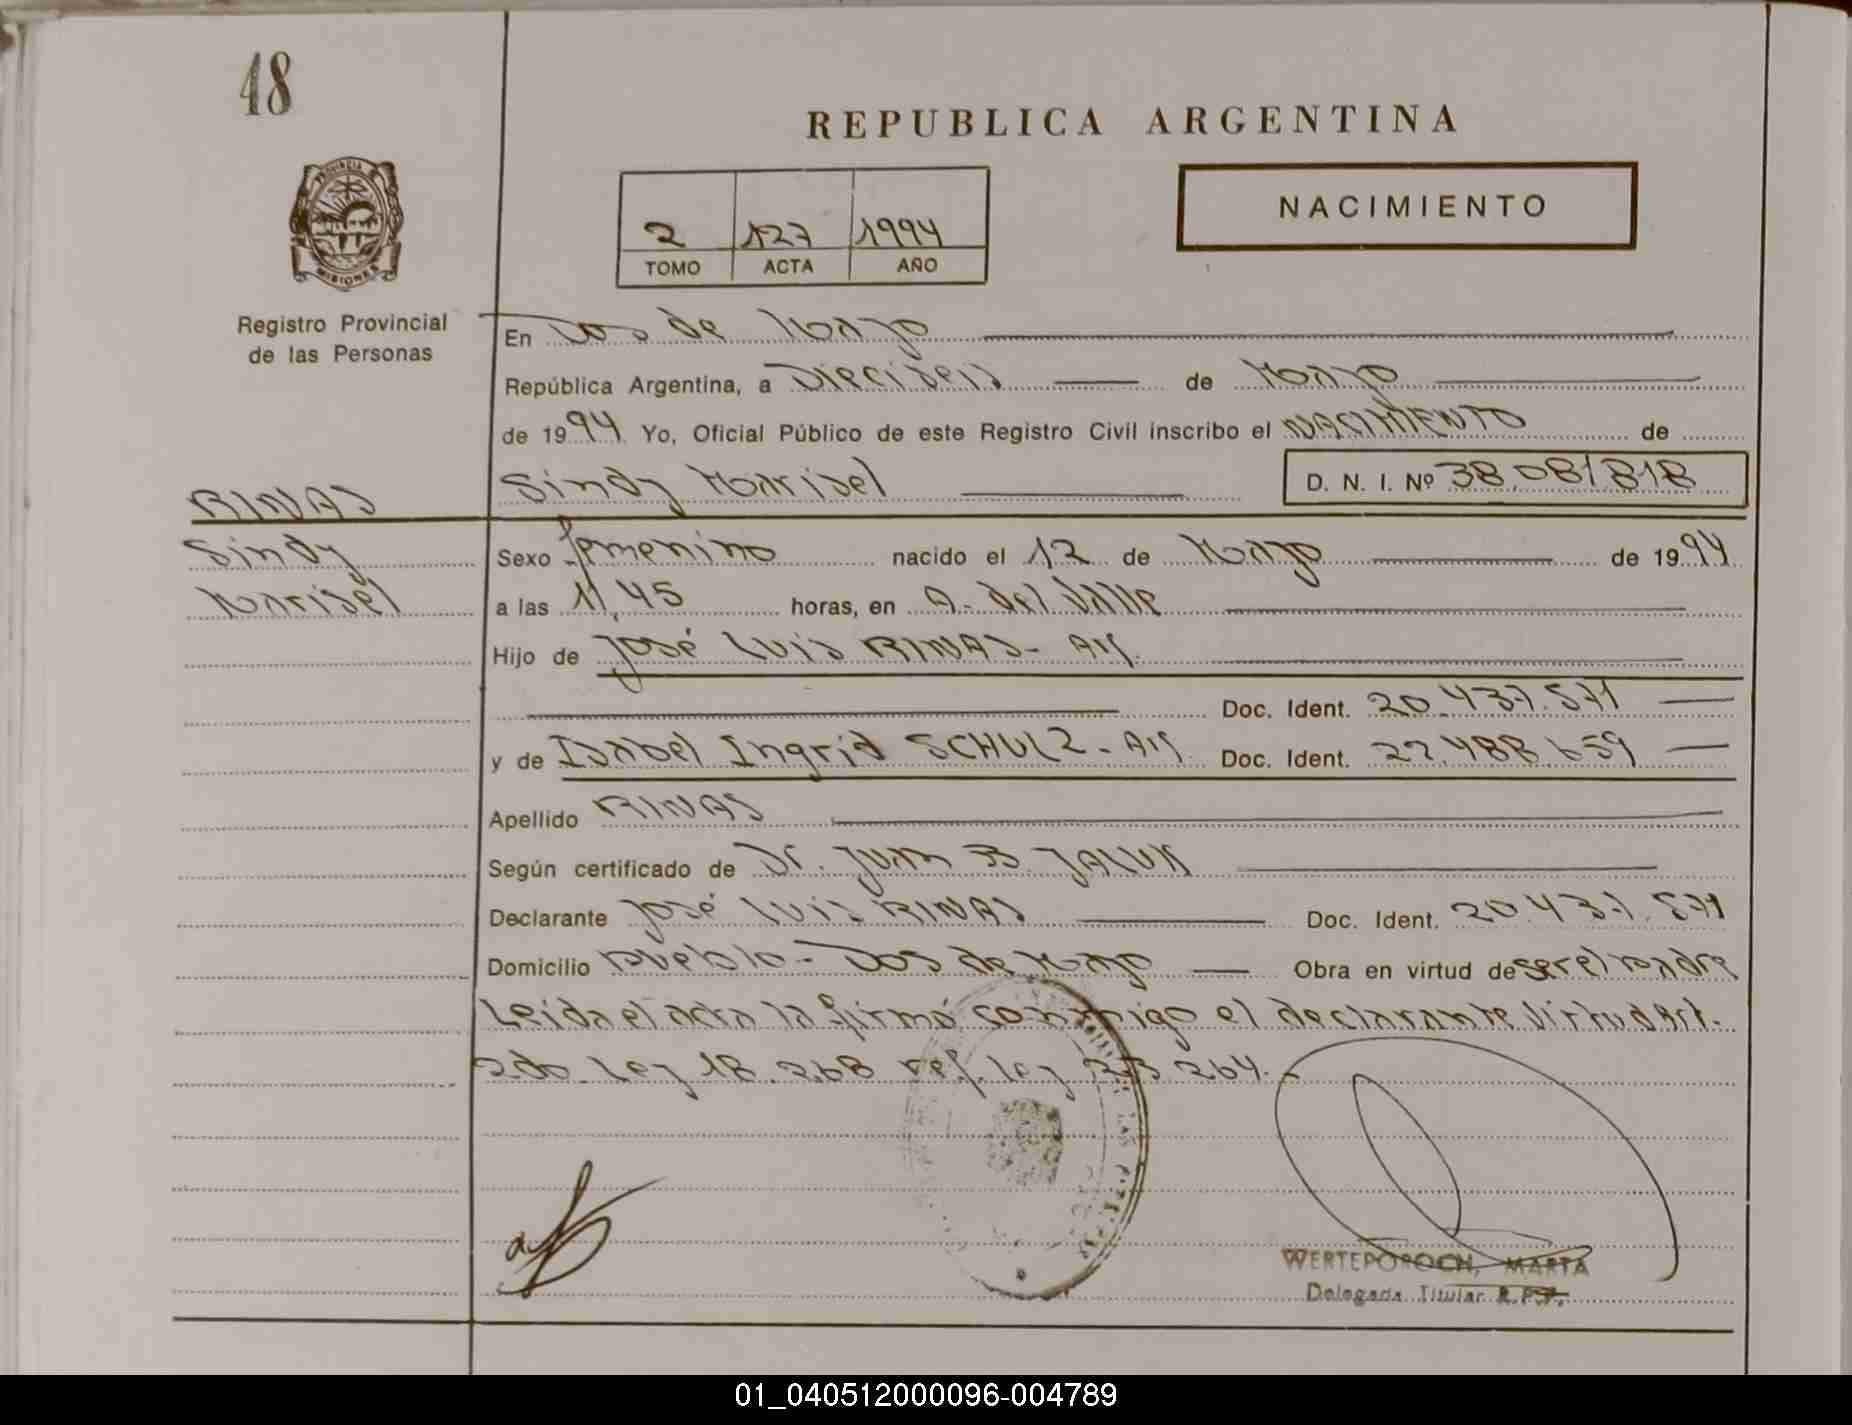 48
REPUBLICA ARGENTINA
PROVINCIA D
MISIONES
Registro Provincial
de las Personas
NACIMIENTO
2 127 1994
TOMO ACTA AÑO
En Dos de Marzo
República Argentina, a Dieciseis de Marzo
de 1994 Yo, Oficial Público de este Registro Civil inscribo el NACIMIENTO de
Sindy Marisel D. N. I. Nº 38.081818
RINAS
Sindy
Marisel
Sexo femenino nacido el 12 de Marzo de 1994
a las 11,45 horas, en A. del Valle
Hijo de José Luis RINAS - Arg.
Doc. Ident. 20.437.571
y de Isabel Ingrid SCHULZ - Arg. Doc. Ident. 22.488.659
Apellido RINAS
Según certificado de Dr. Juan B.
Declarante José Luis RINAS Doc. Ident. 20.437.571
Domicilio Pueblo - Dos de Marzo Obra en virtud de ser el padre
Leida el acta la firmó conmigo el declarante virtud Art.
2do Ley 18.268 ref. Ley 23.264.
WERTEPOROCH, MARTA
Delegada Titular R.P.P.
01_040512000096-004789